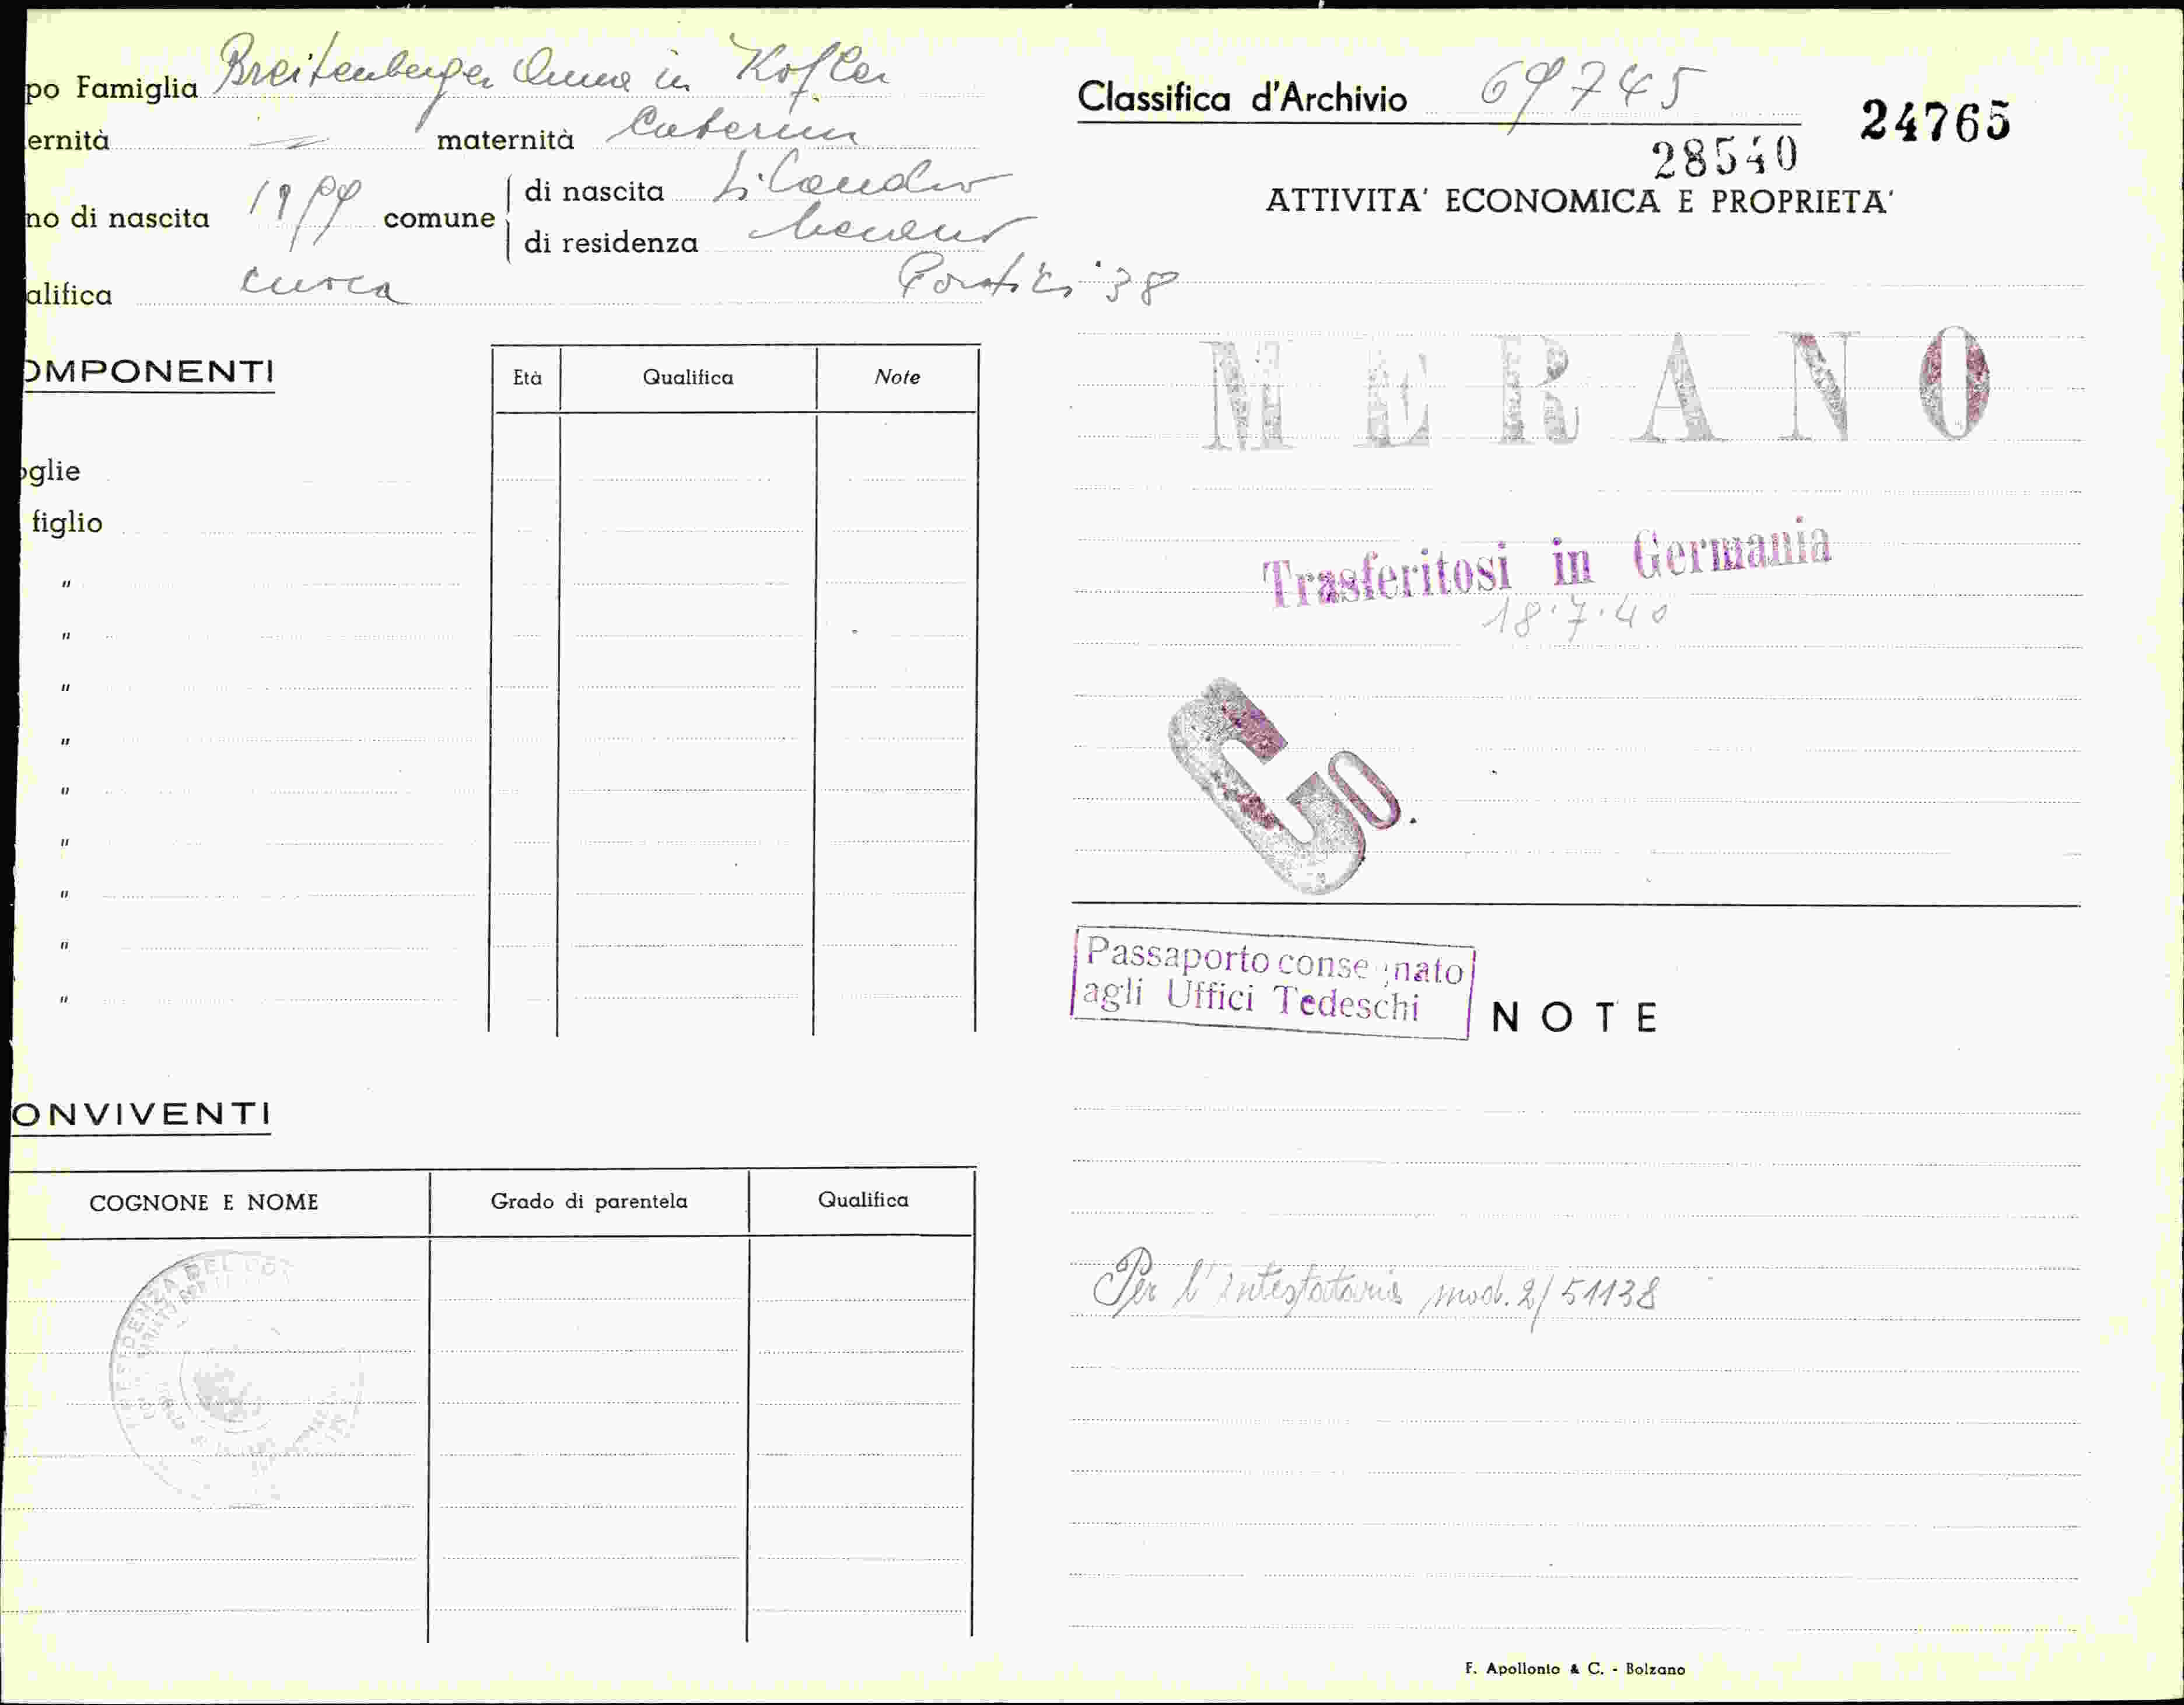 po Famiglia Breitenberger Anna in Kofler
ernità maternità Caterina
no di nascita comune di nascita Silandro
di residenza Merano
alifica cuoca Portici 38
OMPONENTI
Età Qualifica Note
oglie
figlio
"
"
"
"
"
"
"
"
"
ONVIVENTI
COGNONE E NOME Grado di parentela Qualifica
Classifica d'Archivio 69745
24765
28540
ATTIVITA' ECONOMICA E PROPRIETA'
MERANO
Trasferitosi in Germania
18.7.40
Go.
Passaporto conse nato
agli Uffici Tedeschi
NOTE
Per l'intestataria mod. 2/51138
F. Apollonio & C. - Bolzano